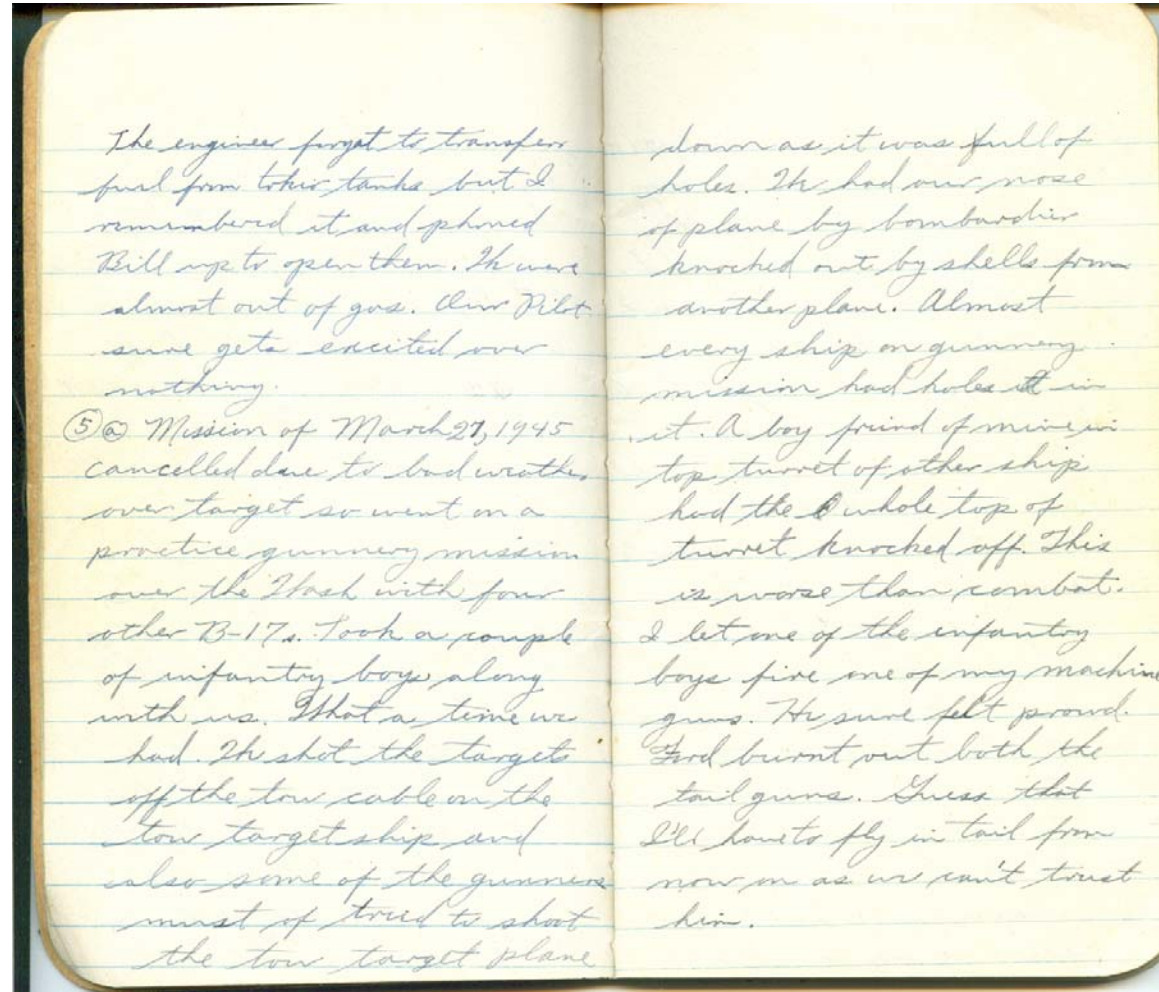 The engineer forgot to transfer
fuel from tokio tanks but I
remembered it and phoned
Bill up to open them. We were
almost out of gas. Our Pilot
sure gets excited over
nothing.
5 a Mission of March 27, 1945
cancelled due to bad weather
over target so went on a
practice gunnery mission
over the Wash with four
other B-17s. Took a couple
of infantry boys along
with us. What a time we
had. We shot the targets
off the tow cable on the
tow target ship and
also some of the gunners
must of tried to shoot
the tow target plane
down as it was full of
holes. We had our nose
of plane by bombardier
knocked out by shells from
another plane. Almost
every ship on gunnery
mission had holes in
it. A boy friend of mine in
top turret of other ship
had the whole top of
turret knocked off. This
is worse than combat.
I let one of the infantry
boys fire one of my machine
guns. He sure felt proud.
Ford burnt out both the
tail guns. Guess that
I'll have to fly in tail from
now on as we can't trust
him.